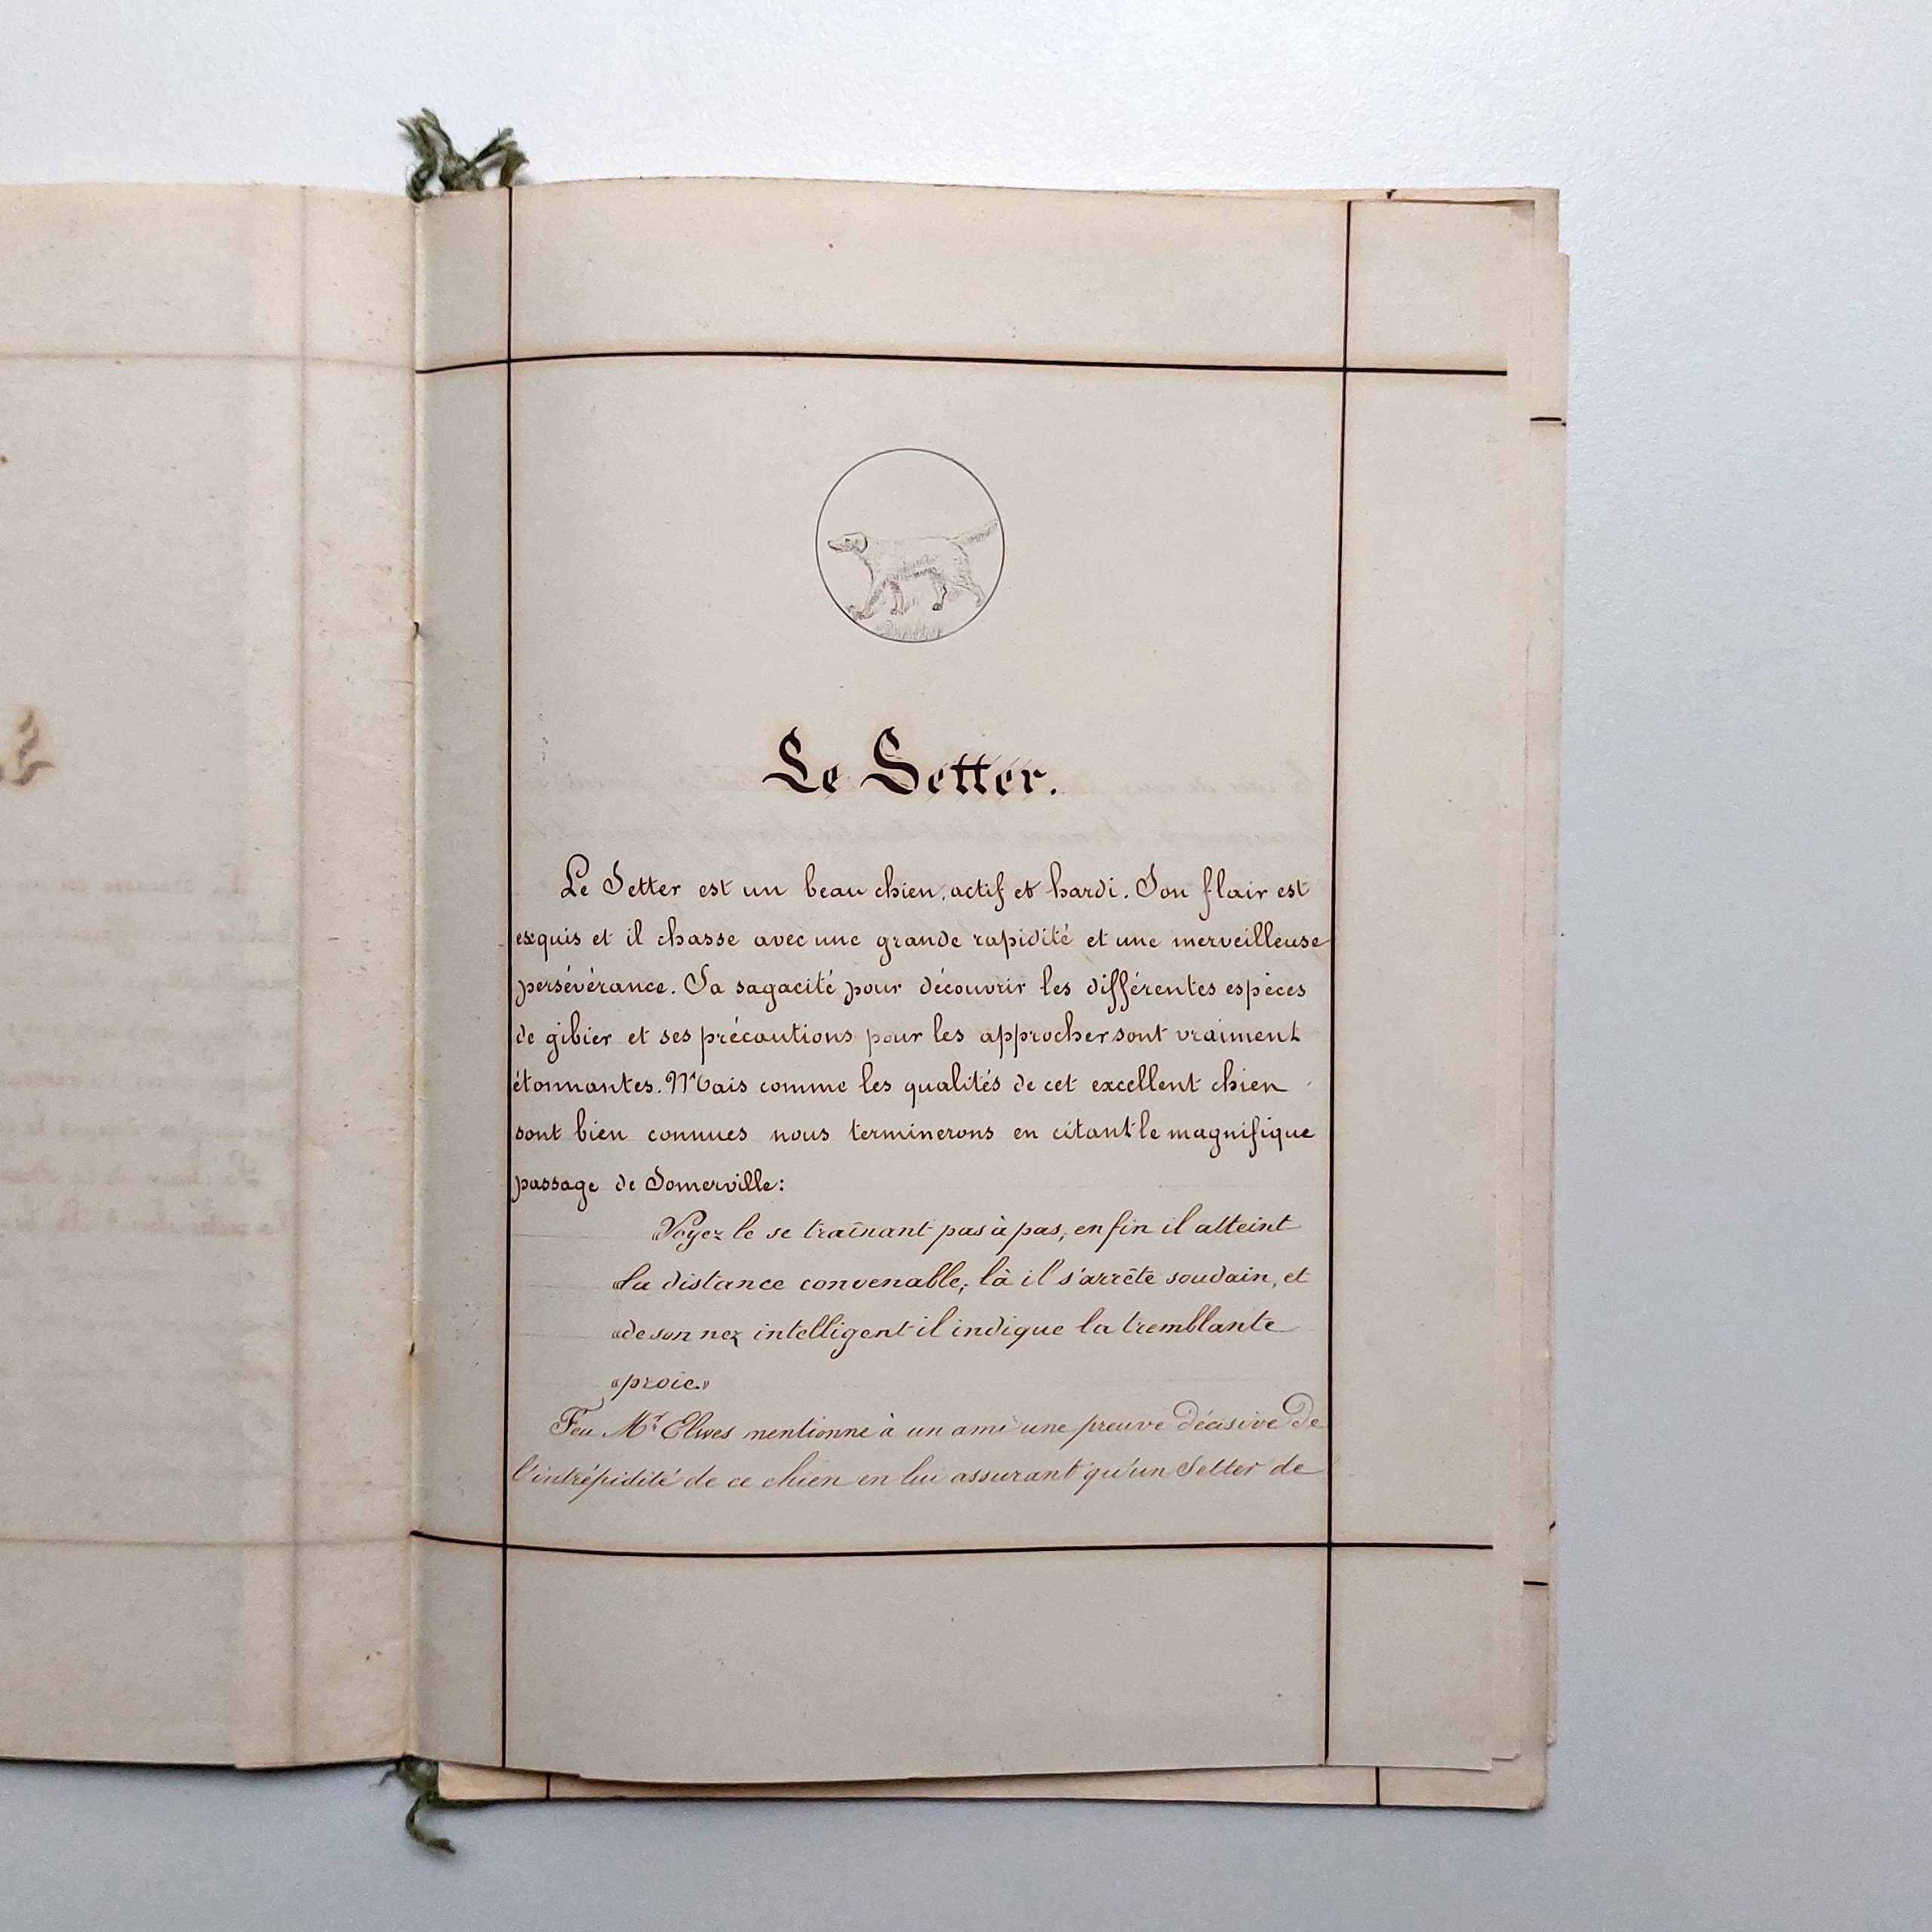 Le Setter.
Le Setter est un beau chien, actif et hardi. Son flair est
exquis et il chasse avec une grande rapidité et une merveilleuse
persévérance. Sa sagacité pour découvrir les différentes espèces
de gibier et ses précautions pour les approcher sont vraiment
étonnantes. Mais comme les qualités de cet excellent chien
sont bien connues nous terminerons en citant le magnifique
passage de Somerville:
Voyez le se traînant pas à pas, enfin il atteint
«la distance convenable; là il s'arrête soudain, et
«de son nez intelligent il indique la tremblante
«proie.»
Feu Mr. Elwes mentionne à un ami une preuve décisive de
l'intrépidité de ce chien en lui assurant qu'un Setter de